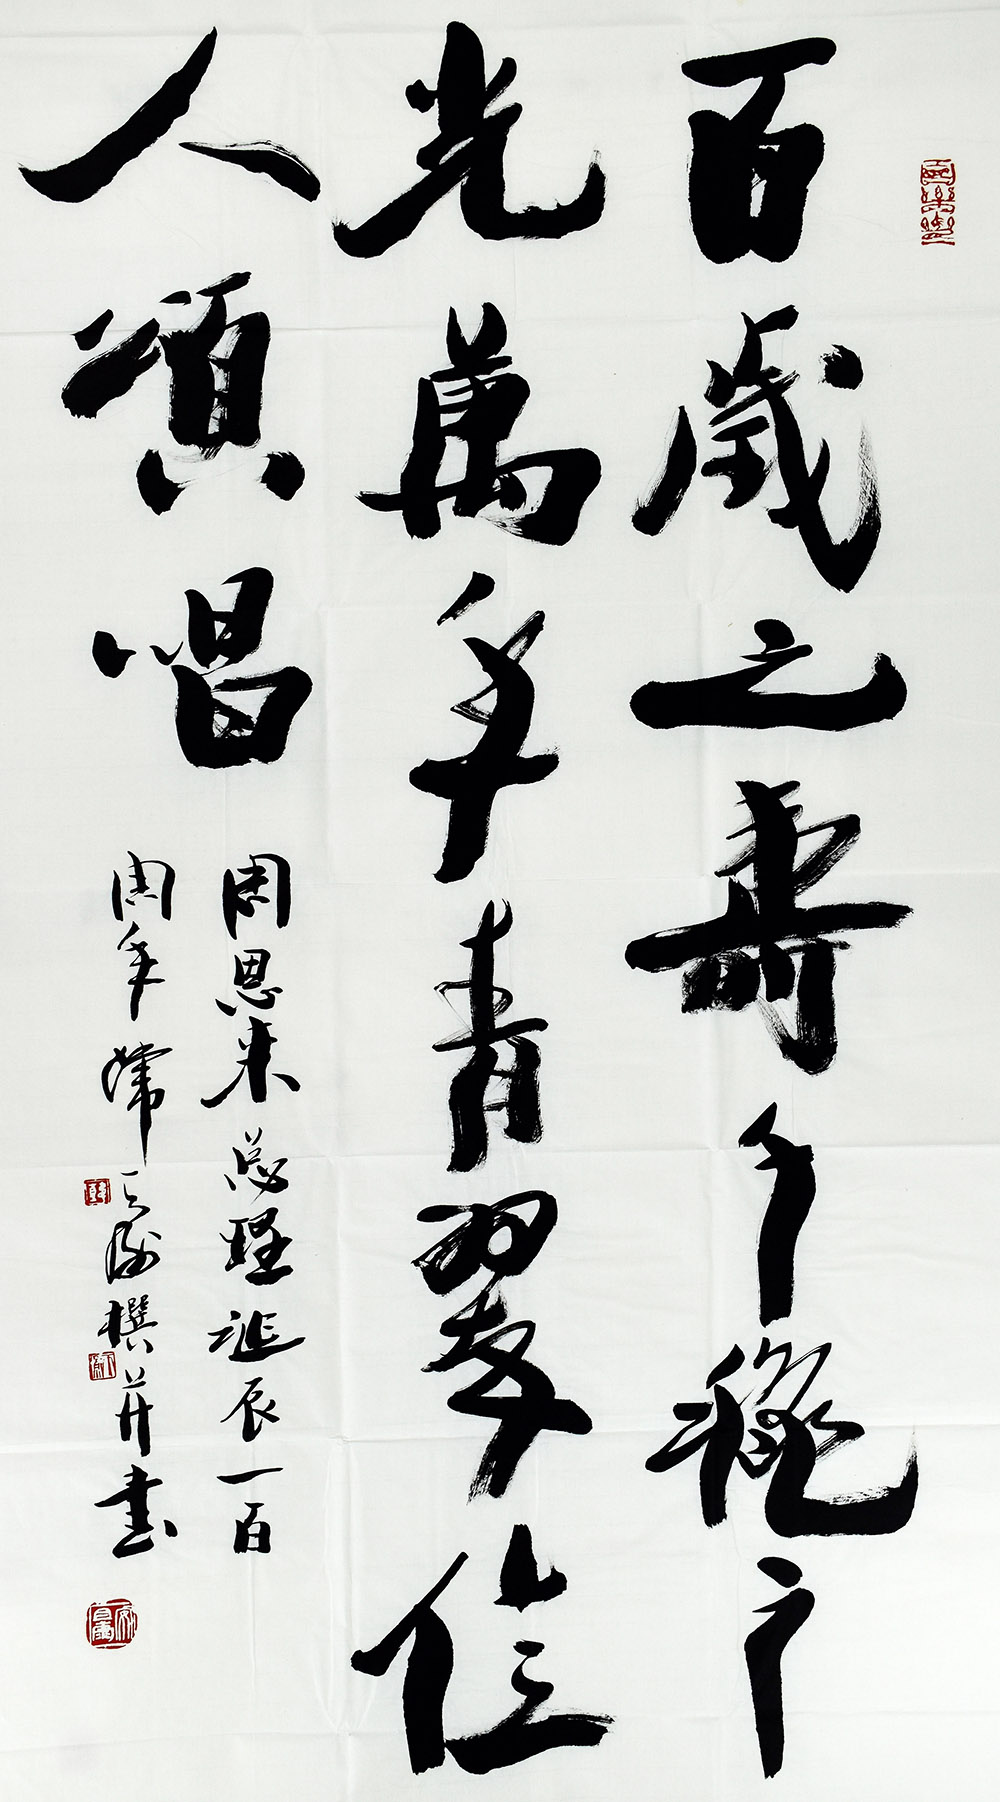 百歲之壽千穐
光萬年青翠億
人頌唱
周恩来总理誕辰一百
周年撰并書